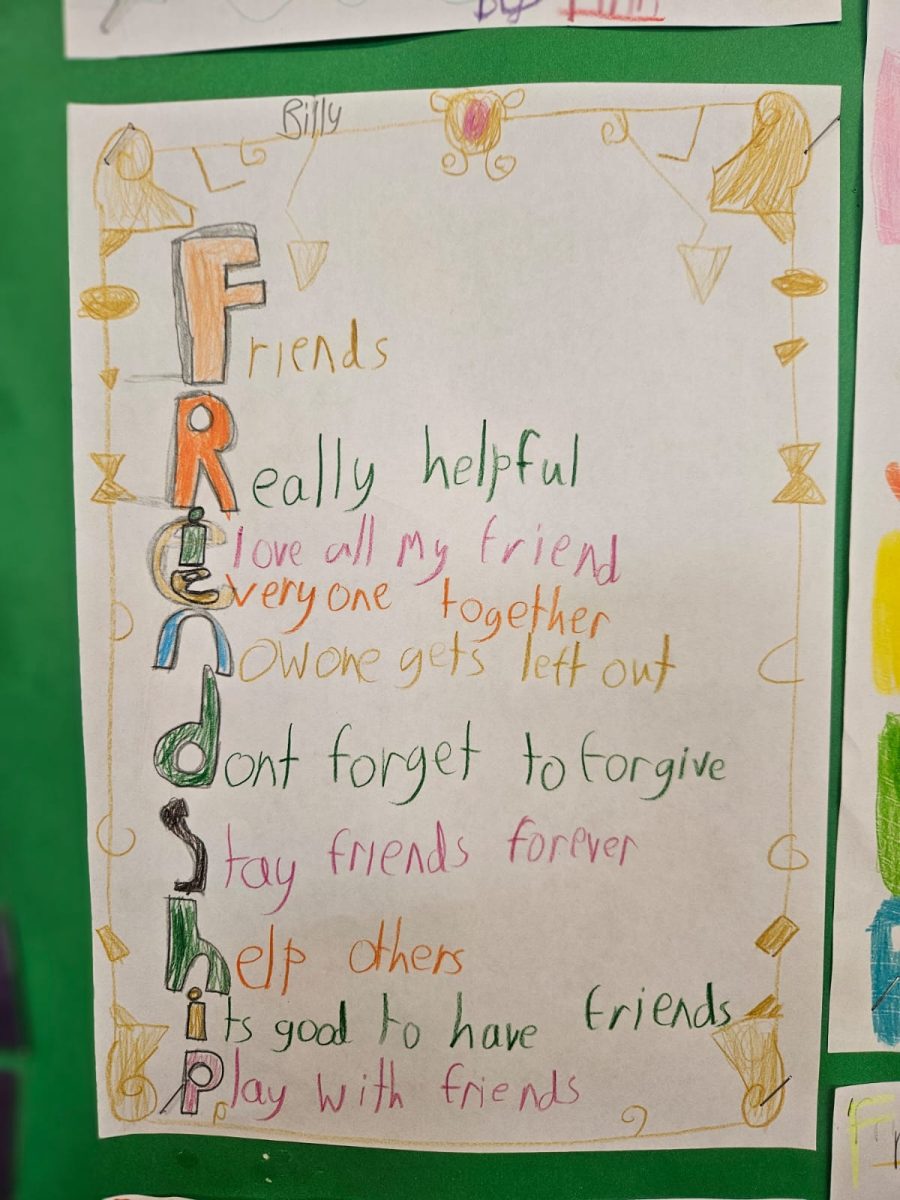 By Finn
Billy
Friends
Really helpful
i love all my friend
everyone together
nowone gets left out
dont forget to forgive
Stay friends forever
help others
its good to have friends
Play with friends